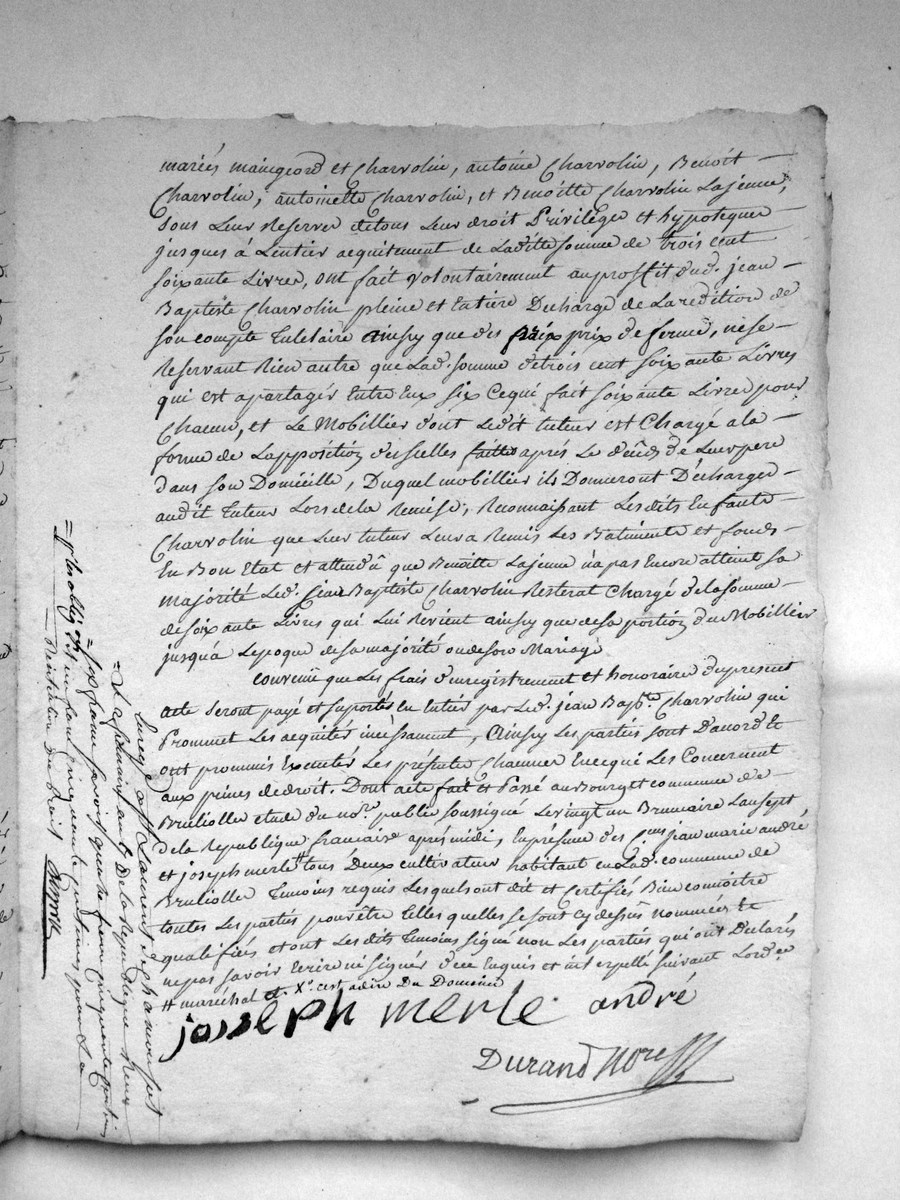 mariés maingeard et Charvolin, antoine Charvolin, Benoit
Charvolin, antoinette Charvolin, et Benoitte Charvolin Lajeune,
sous Leur Reserve detous Leur droit Privilége et hypoteque
jusques à Lentier acquitement de Laditte somme de trois cent
soixante Livres, ont fait volontairement auproffit dud. jean
Baptiste Charvolin pleine et Entière Decharge de La redition de
son compte Tutelaire ainsy que des prix de ferme, nese
Reservant Rien autre que Lad. somme detrois cent soixante Livres
qui est apartager Entre Eux six Cequi fait soixante Livres pour
Chacun, et Le Mobillier dont Ledit tuteur est Chargé a la
forme de Lapposition desselles faitte après Le décéd de Leur pere
dans son Domicille, Duquel mobillier ils Donneront Décharger
audit Tuteur Lors de la Remise, Reconnaissant Lesdits Enfants
Charvolin que Leur tuteur Leur a Remis Les Batiments et fonds
En Bon Etat et attendû que Benoitte Lajeune n'a pas Encore atteint sa
majorité Led. Jean Baptiste Charvolin Resterat Chargé de la somme
de soixante Livres qui Lui Revient ainsy que de sa portion du Mobillier
jusqu'à Lepoque de sa majorité ou de son Mariage
convenu que Les frais d'enregistrement et honoraire du present
acte seront payé et suportés En Entier par Led. jean Bapte. Charvolin qui
Prommet Les acquités incessament, Ainsy Les parties sont D'accord Et
ont prommis Executer Les présentes Chacune Enceque Les Concernent
aux peines de droit. Dont acte fait et Passé au Bourg et commune de
Brulliolle etude du nore. public soussigné Le vingt un Brumaire Lan sept
de la Republique francaise après midi, En présence des Cens jean marie andré
et joseph merle # tous deux cultivateur habitant en Lad. commune de
Brulliolle Temoins requis Lesquels ont dit et Certifiés Bien connoitre
toutes Les parties pour être Telles quelles se sont cy dessus nommées et
qualifiées et ont Lesdits Temoins signé non Les parties qui ont Declarés
ne pas savoir Ecrire ni signer de ce Enquis et interpellé suivant Lord.ce
# maréchal et X. c'est adire du Domaine
josseph merle. andré
Durand Nore
Enregé a St Laurent de Chamousset
= La République
= six francs savoir quatre francs cinquante centimes
= pour l'obligon. et un franc cinquante centimes pour La